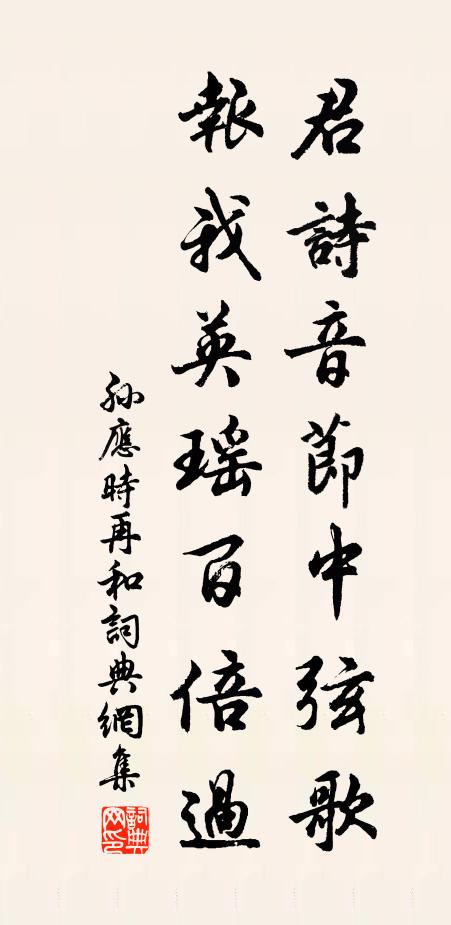 君詩音節中弦歌
報我英瑤百倍過
孫應時再和詞典網集
詞典網印